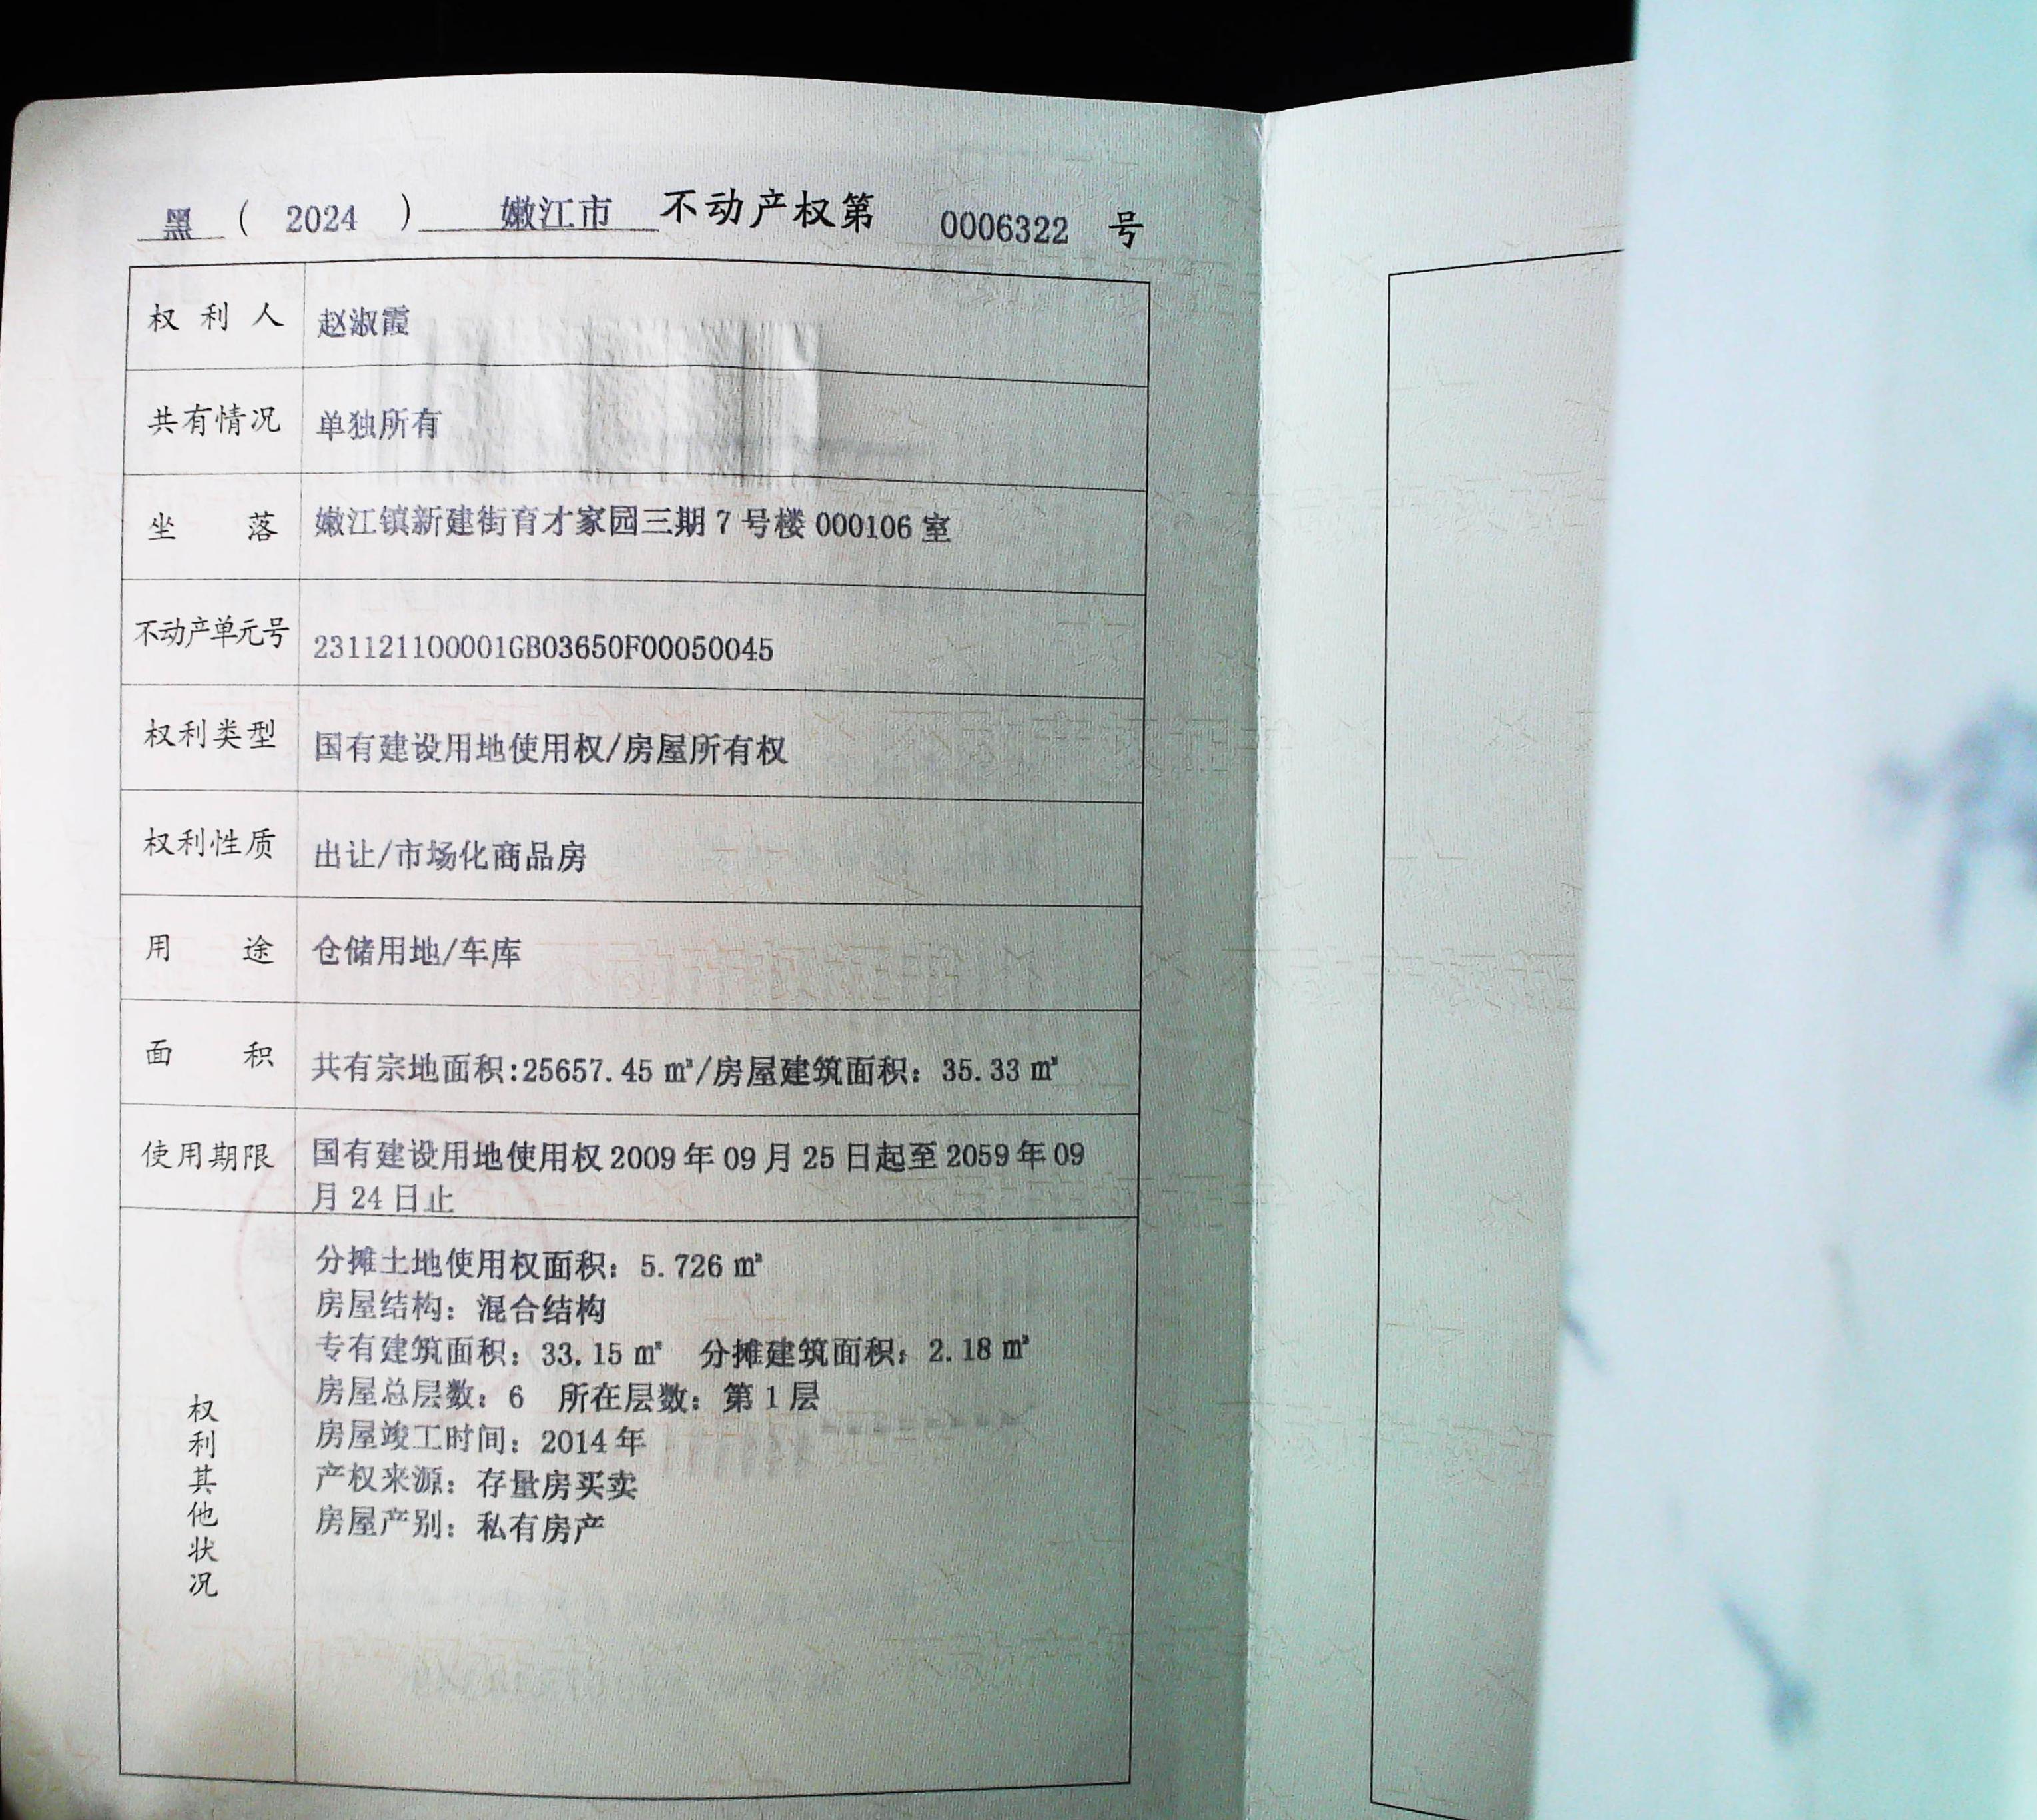 黑 ( 2024 ) 嫩江市 不动产权第 0006322 号
权利人 赵淑霞
共有情况 单独所有
坐落 嫩江镇新建街育才家园三期 7 号楼 000106 室
不动产单元号 231121100001GB03650F00050045
权利类型 国有建设用地使用权/房屋所有权
权利性质 出让/市场化商品房
用途 仓储用地/车库
面积 共有宗地面积:25657.45 ㎡/房屋建筑面积：35.33 ㎡
使用期限 国有建设用地使用权 2009 年 09 月 25 日起至 2059 年 09
月 24 日止
权利其他状况
分摊土地使用权面积：5.726 ㎡
房屋结构：混合结构
专有建筑面积：33.15 ㎡ 分摊建筑面积：2.18 ㎡
房屋总层数：6 所在层数：第 1 层
房屋竣工时间：2014 年
产权来源：存量房买卖
房屋产别：私有房产